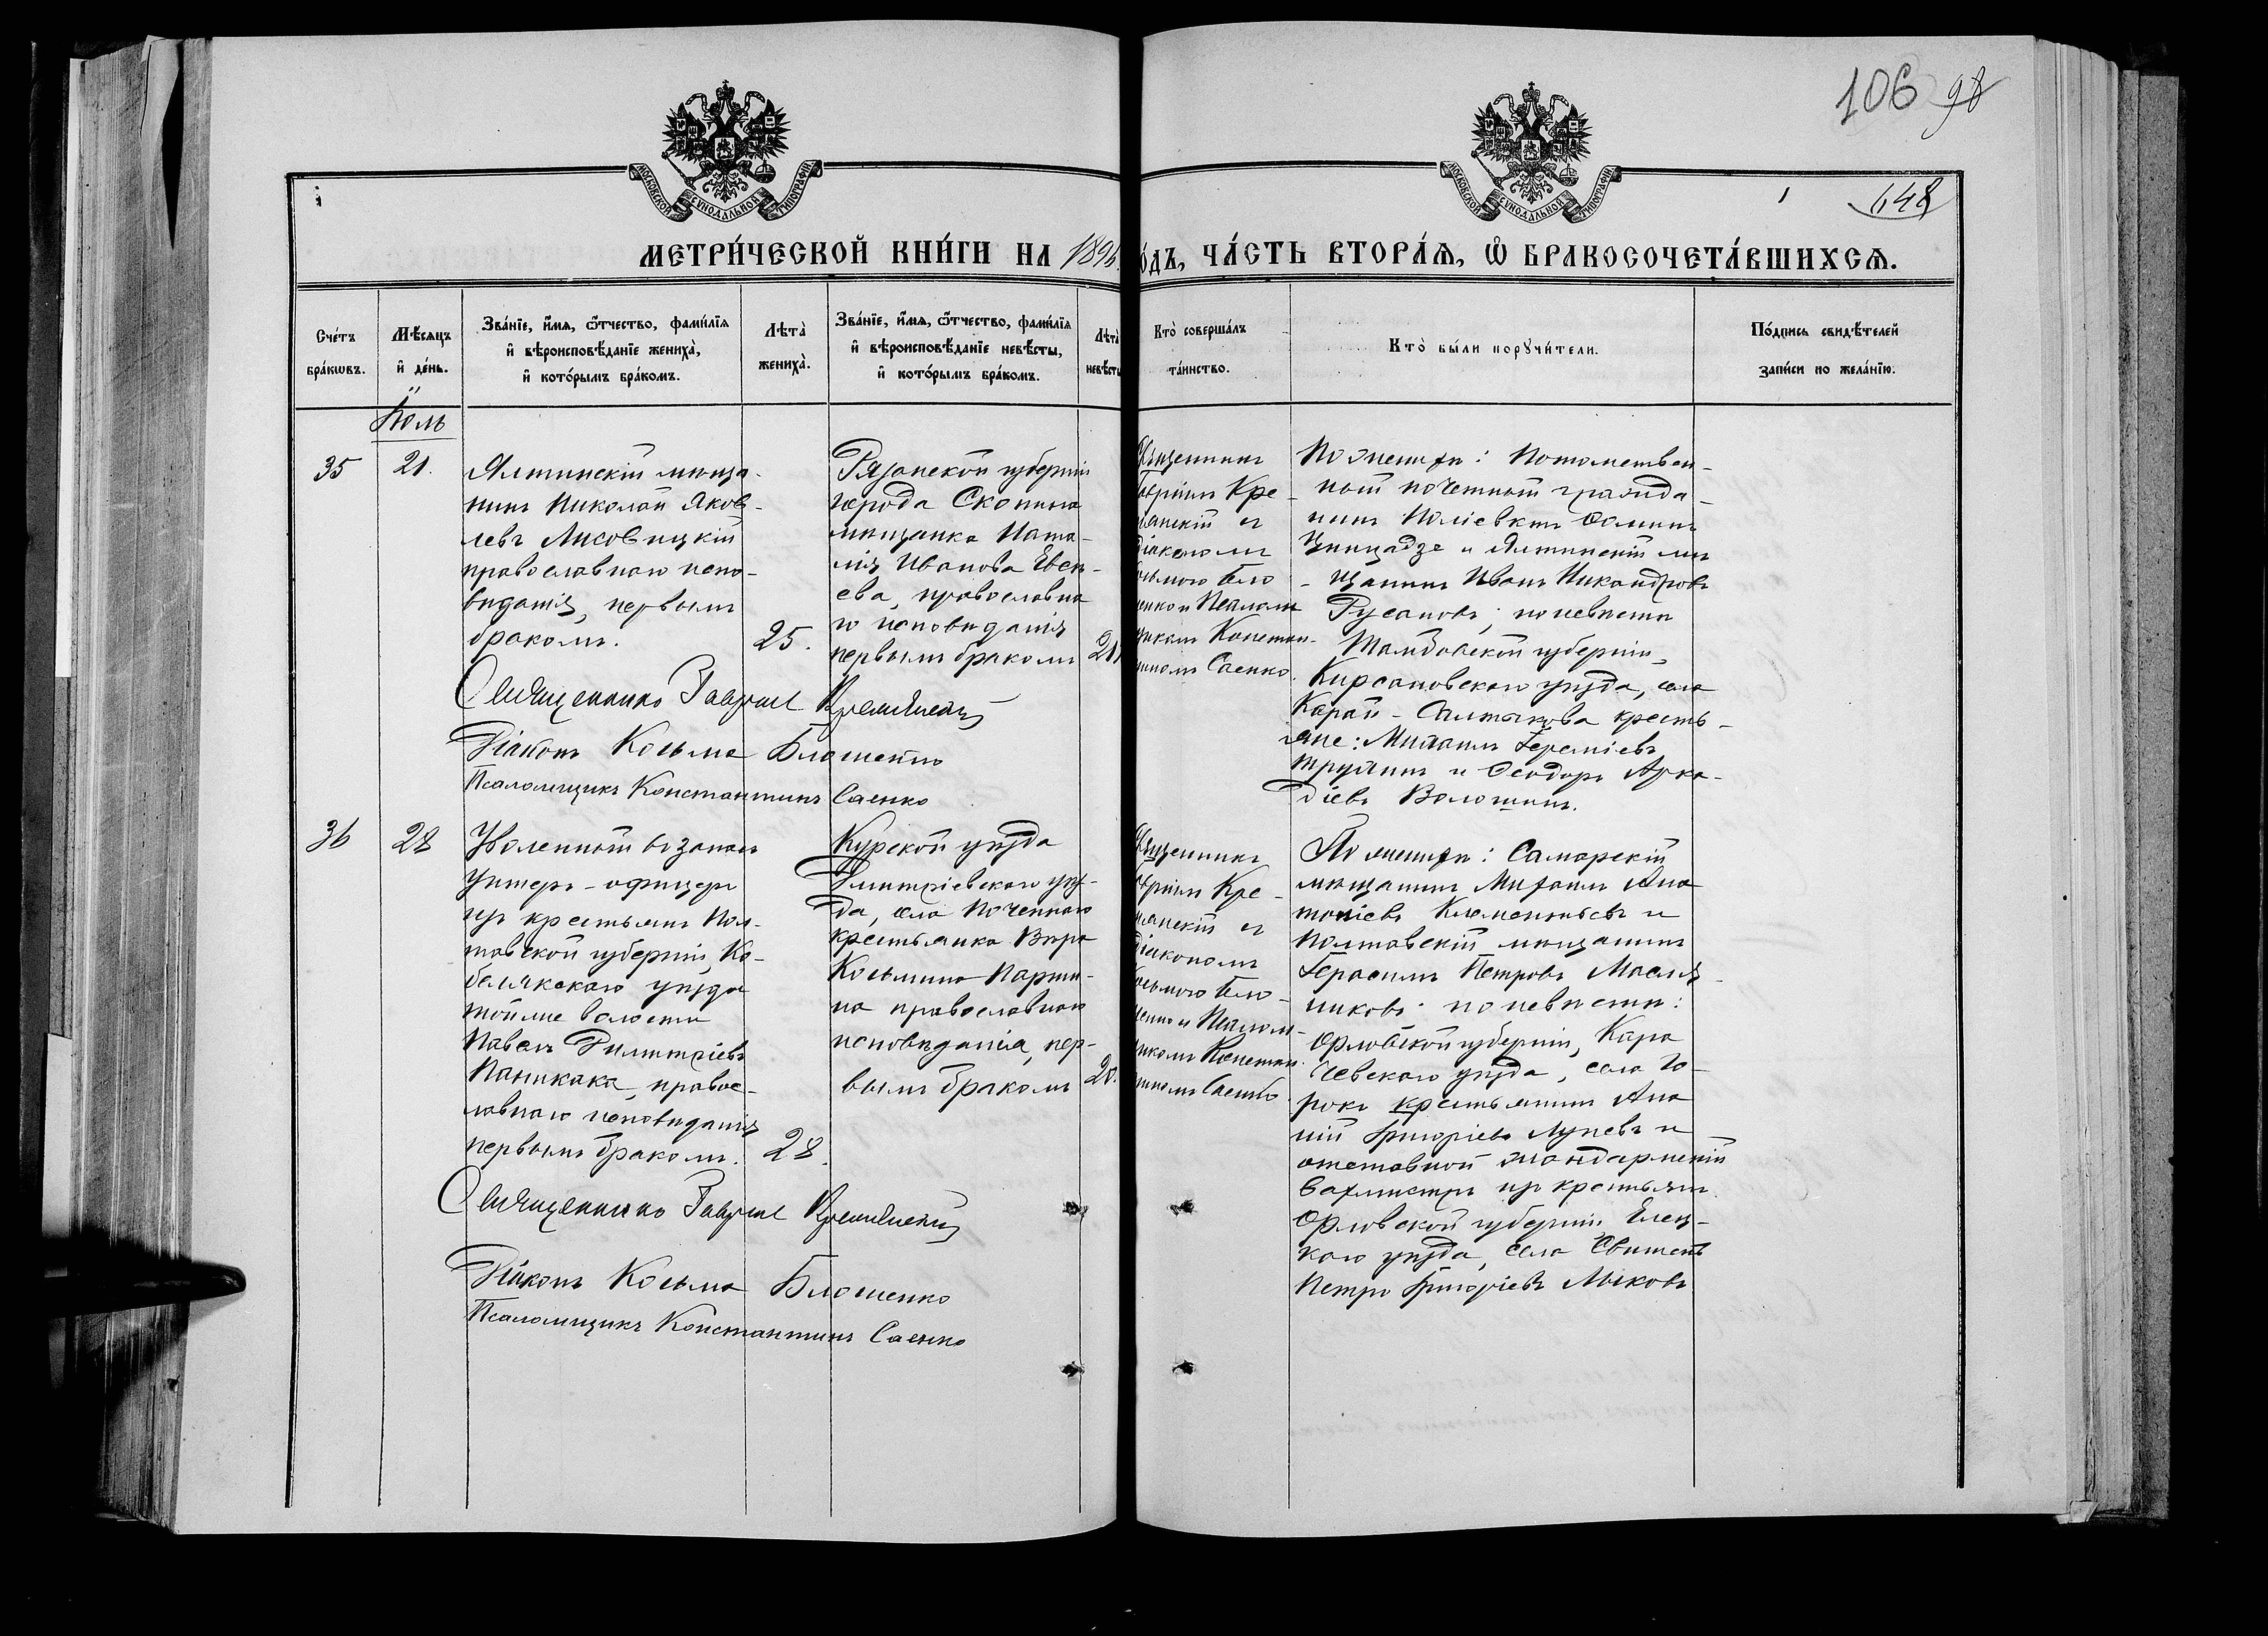 106 98
648
МОСКОВСКОЙ СѴНОДАЛЬНОЙ ТИПОГРАФІИ
МОСКОВСКОЙ СѴНОДАЛЬНОЙ ТИПОГРАФІИ
МЕТРИ́ЧЕСКОЙ КНИ́ГИ НА 1896
ОДЪ, ЧА́СТЬ ВТОРА́Ѧ, Ѽ БРАКОСОЧЕТА́ВШИХСѦ.
Сче́тъ
бра́кѡвъ.
Мѣ́сяцъ
и҆ де́нь.
Зва́нїе, и҆́мя, ѻ҆́тчество, фами́лїя
и҆ вѣроисповѣ́данїе жениха̀,
и҆ кото́рымъ бра́комъ.
Лѣта̀
жениха̀.
Зва́нїе, и҆́мя, ѻ҆́тчество, фами́лїя
и҆ вѣроисповѣ́данїе невѣ́сты,
и҆ кото́рымъ бра́комъ.
Лѣта̀
невѣ́сты
Кто̀ соверша́лъ
та́инство.
Кто̀ бы́ли порꙋчи́тели.
По́дпись свидѣ́телей
запи́си по жела́нїю.
Іюль
35
21.
Ялтинскій мѣща-
нинъ Николай Яков-
левъ Лисовицкій
православнаго испо-
вѣданія, первымъ
бракомъ.
25.
Рязанской губерніи
города Скопина
мѣщанка Ната-
лія Иванова Евсе-
ева, православна
го исповѣданія
первымъ бракомъ
21
Кре-
и
діакономъ
Бло-
Псалом
Констан-
Саенко.
По женихѣ: Потомствен-
ный почетный гражда-
нинъ Поліевктъ Фоминъ
Цинцадзе и Ялтинскій мѣ
щанинъ Иванъ Никандровъ
Русановъ; по невѣстѣ
Тамбовской губерніи,
Кирсановскаго уѣзда, села
Карай-Салтыкова кресть-
яне: Михаилъ Іереміевъ
Трухинъ и Ѳеодоръ Арка-
діевъ Волошинъ.
Священникъ Гавріилъ Кремянскій
Діаконъ Косьма Блошенко
Псаломщикъ Константинъ Саенко
36
28
Уволенный въ запасъ
Унтеръ-офицеръ
изъ крестьянъ Пол-
тавской губерніи, Ко-
белякскаго уѣзда
той же волости
Павелъ Димитріевъ
Паникака, правос-
лавнаго исповѣданія
первымъ бракомъ.
28.
Курской уѣзда
Дмитріевскаго уѣз-
да, села Поченнаго
крестьянка Вѣра
Косьмина Парши-
на православнаго
исповѣданія, пер-
вымъ бракомъ
20.
Кре-
и
діакономъ
Бло-
Псалом-
Констан
Саенко.
По женихѣ: Самарскій
мѣщанинъ Михаилъ Ана
толіевъ Клементьевъ и
Полтавскій мѣщанинъ
Герасимъ Петровъ Масля-
никовъ; по невѣстѣ:
Орловской губерніи, Кара
чевскаго уѣзда, села Го-
рокъ крестьянинъ Ана
ній Григоріевъ Луневъ и
отставной жандармскій
вахмистръ изъ крестьянъ
Орловской губерніи Елец-
каго уѣзда, села
Петръ Григоріевъ Лыковъ
Священникъ Гавріилъ Кремянскій
Діаконъ Косьма Блошенко
Псаломщикъ Константинъ Саенко